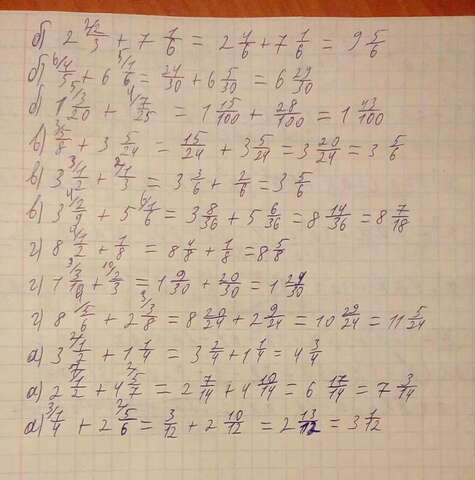 б) 2 2/3 + 7 1/6 = 2 4/6 + 7 1/6 = 9 5/6
б) 4/5 + 6 1/6 = 24/30 + 6 5/30 = 6 29/30
б) 1 3/20 + 7/25 = 1 15/100 + 28/100 = 1 43/100
в) 5/8 + 3 5/24 = 15/24 + 3 5/24 = 3 20/24 = 3 5/6
в) 3 1/2 + 1/3 = 3 3/6 + 2/6 = 3 5/6
в) 3 2/9 + 5 1/6 = 3 8/36 + 5 6/36 = 8 14/36 = 8 7/18
г) 8 1/2 + 1/8 = 8 4/8 + 1/8 = 8 5/8
г) 1 3/10 + 2/3 = 1 9/30 + 20/30 = 1 29/30
г) 8 5/6 + 2 3/8 = 8 20/24 + 2 9/24 = 10 29/24 = 11 5/24
а) 3 1/2 + 1 1/4 = 3 2/4 + 1 1/4 = 4 3/4
а) 2 1/2 + 4 5/7 = 2 7/14 + 4 10/14 = 6 17/14 = 7 3/14
а) 1/4 + 2 5/6 = 3/12 + 2 10/12 = 2 13/12 = 3 1/12